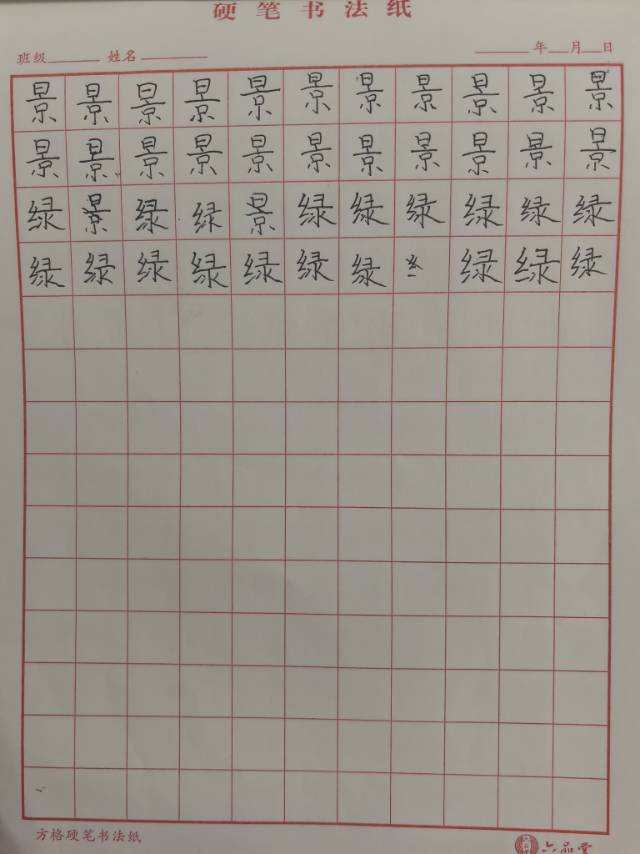 硬笔书法纸
班级 姓名 年 月 日
景景景景景景景景景景景
景景景景景景景景景景景
绿景绿绿景绿绿绿绿绿绿
绿绿绿绿绿绿绿纟绿绿绿
方格硬笔书法纸 六品堂